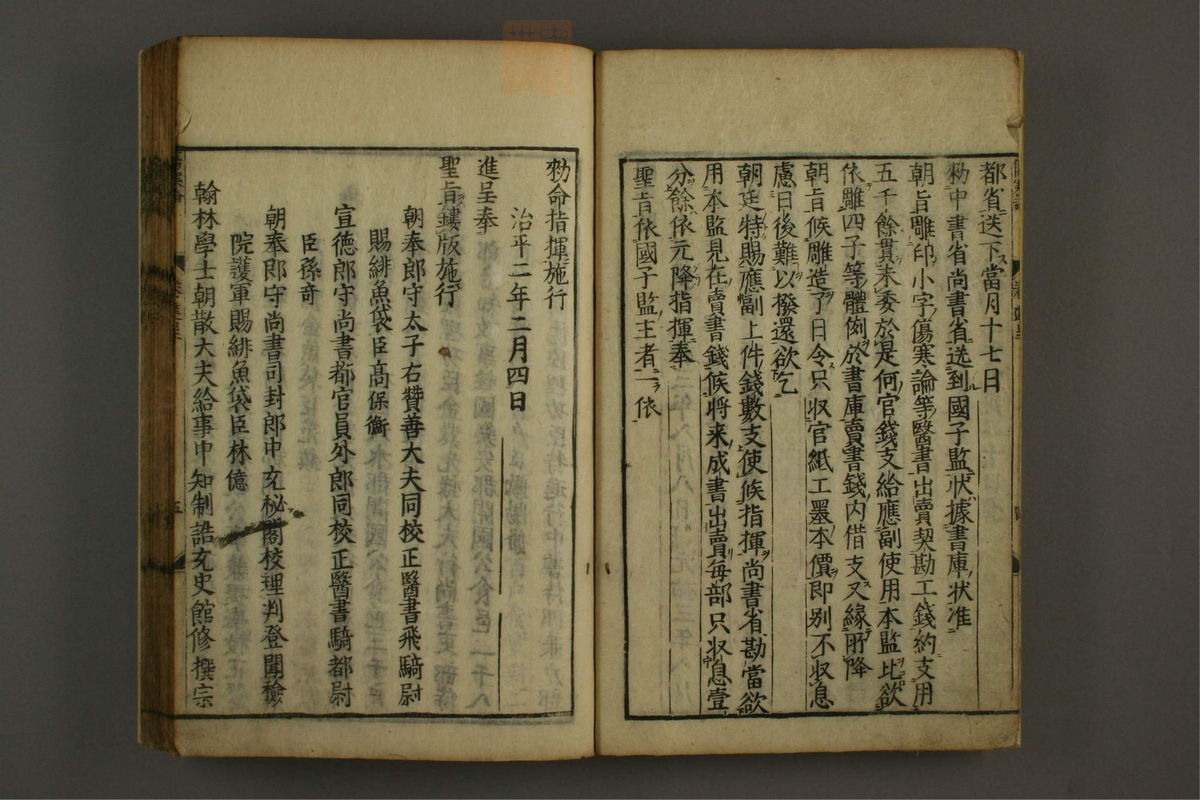 都省送下當月十七日
勑中書省尚書省送到國子監狀據書庫狀准
朝旨雕印小字傷寒論等醫書出賣契勘工錢約支用
五千餘貫未委於是何官錢支給應副使用本監比欲
依雕四子等體例於書庫賣書錢内借支又緣所降
朝旨候雕造了日令只収官紙工墨本價即别不収息
慮日後難以撥還欲乞
朝廷特賜應副上件錢數支使候指揮尚書省勘當欲
用本監見在賣書錢候将来成書出賣每部只収息壹
分餘依元降指揮奉
聖旨依國子監主者一依
勑命指揮施行
治平二年二月四日
進呈奉
聖旨鏤版施行
朝奉郎守太子右贊善大夫同校正醫書飛騎尉
賜緋魚袋臣髙保衡
宣徳郎守尚書都官員外郎同校正醫書騎都尉
臣孫竒
朝奉郎守尚書司封郎中充秘閣校理判登聞檢
院護軍賜緋魚袋臣林億
翰林學士朝散大夫給事中知制誥充史館修撰宗